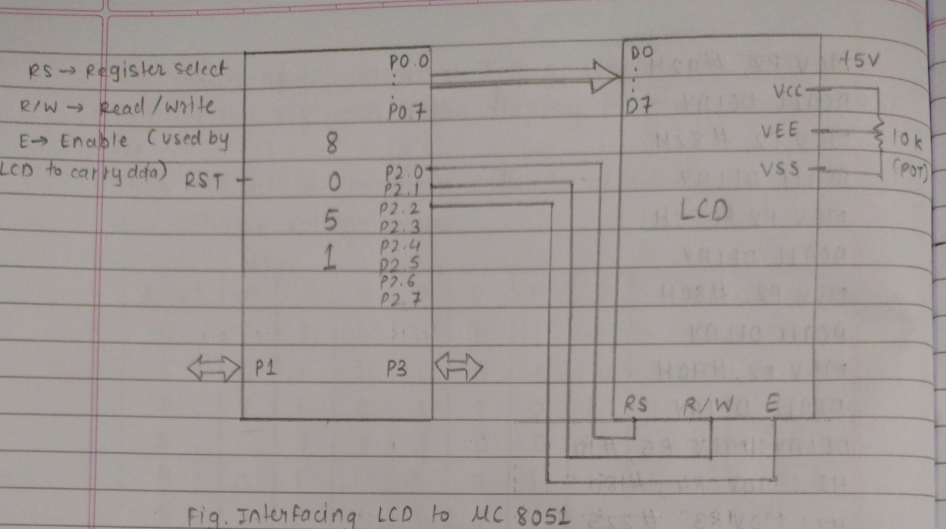 RS → Register select
R/W → Read/write
E → Enable (used by
LCD to carry data)
RST
8
0
5
1
P0.0
P0.7
P2.0
P2.1
P2.2
P2.3
P2.4
P2.5
P2.6
P2.7
P1
P3
D0
D7
+5V
VCC
VEE
VSS
10k
(POT)
LCD
RS R/W E
Fig. Interfacing LCD to MC 8051